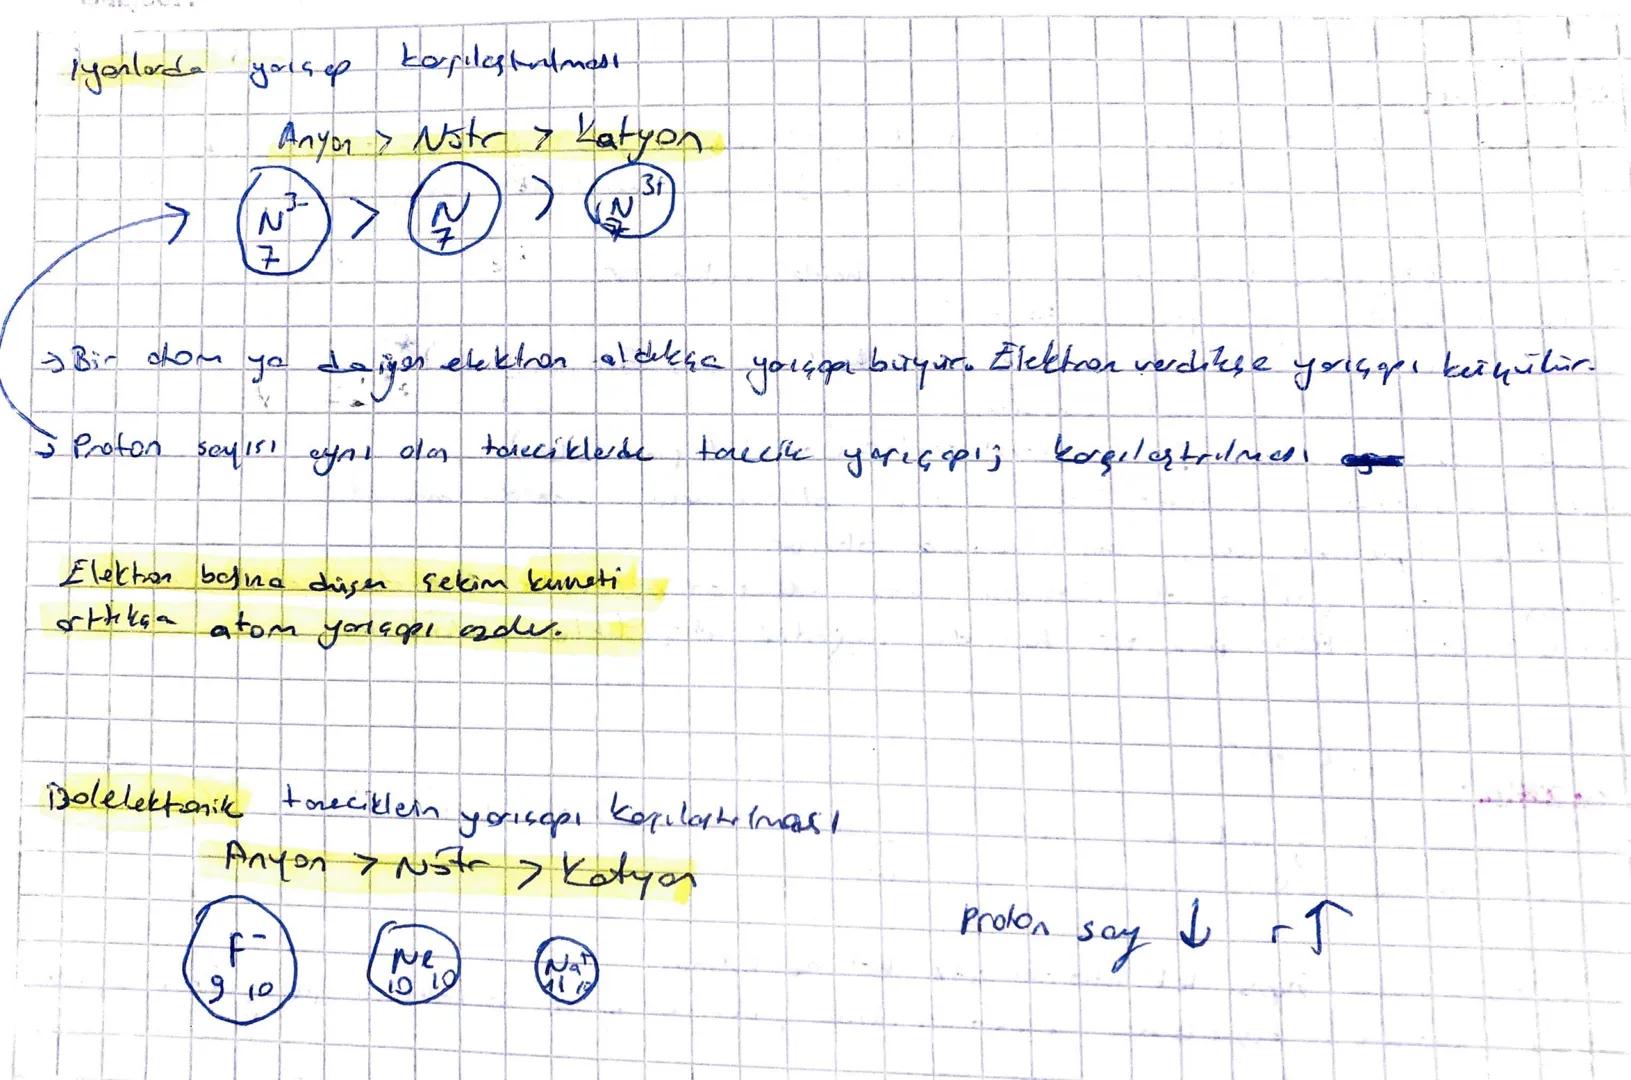 iyonlarda yarıçap karşılaştırılması
Anyon > Nötr > Katyon
N³⁻ > N > N³⁺
7 7 7
→ Bir atom ya da iyon elektron aldıkça yarıçapı büyür. Elektron verdikçe yarıçapı küçülür.
→ Proton sayısı aynı olan taneciklerde tanecik yarıçapı; karşılaştırılması
Elektron başına düşen çekim kuvveti
arttıkça atom yarıçapı azalır.
izolelektronik taneciklerin yarıçapı karşılaştırılması
Anyon > Nötr > Katyon
F⁻ Ne Na⁺
9 10 10 10 11 10
Proton say ↓ r ↑